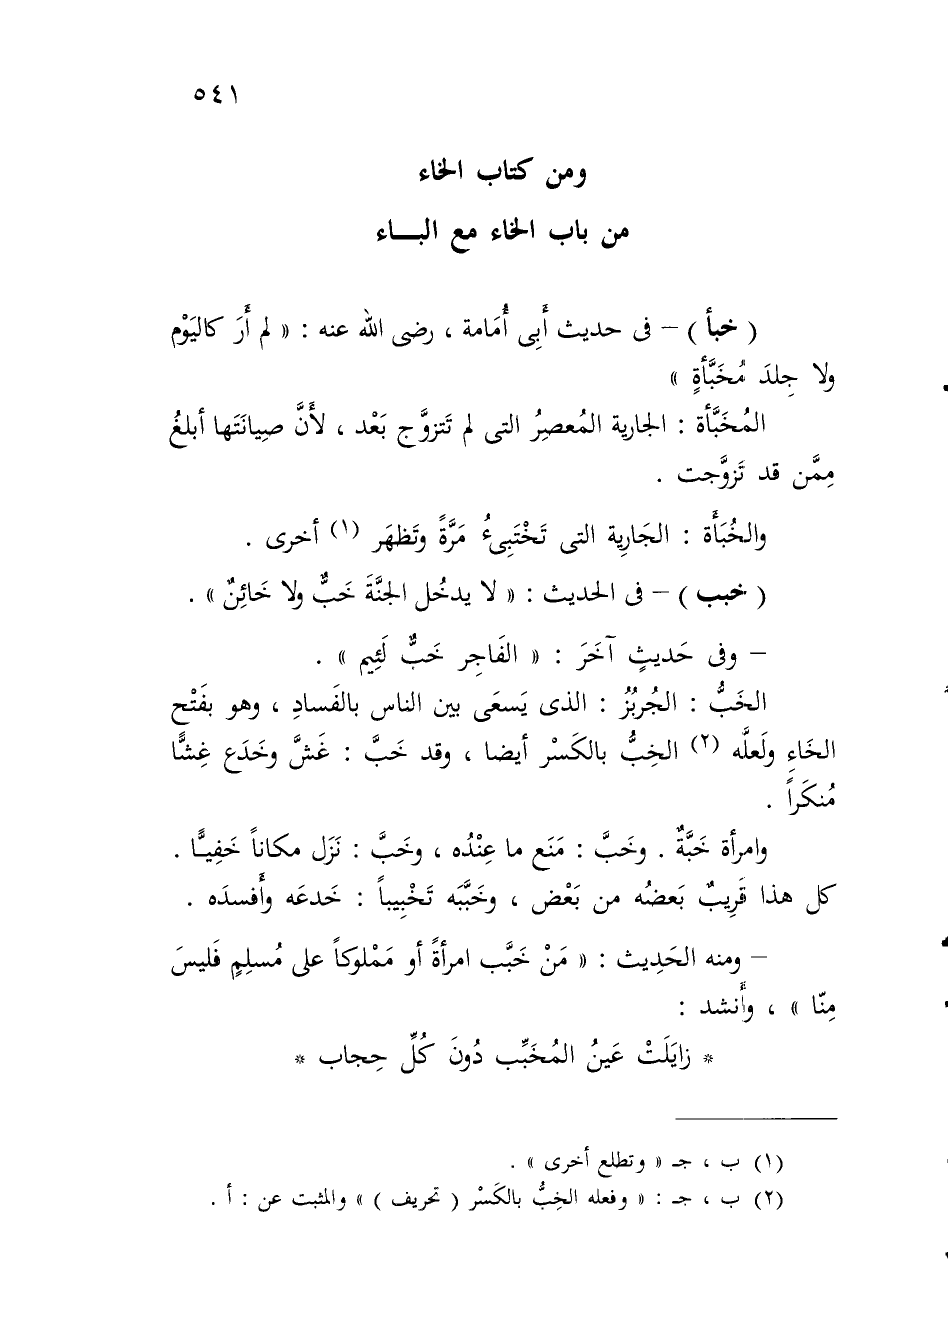 ٥٤١
ومن كتاب الخاء
من باب الخاء مع البـــاء
( خبأ ) – فى حديث أَبِى أُمَامة ، رضى الله عنه : « لم أَرَ كاليَوْم
ولا جِلدَ مُخَبَّأةٍ »
المُخَبَّأة : الجارية المُعصِرُ التى لم تَتزوَّج بَعْد ، لأَنَّ صِيانَتَها أبلغُ
مِمَّن قد تَزوَّجت .
والخُبَأَة : الجَارِية التى تَخْتَبِىءُ مَرَّةً وتَظهَر (١) أخرى .
( خبب ) – فى الحديث : « لا يدخُل الجنَّةَ خَبٌّ ولا خَائِنٌ » .
– وفى حَديثٍ آخَرَ : « الفَاجِر خَبٌّ لَئِيم » .
الخَبُّ : الجُربُزُ : الذى يَسعَى بين الناس بالفَسادِ ، وهو بفَتْح
الخَاءِ ولَعلَّه (٢) الخِبُّ بالكَسْر أيضا ، وقد خَبَّ : غَشَّ وخَدَع غِشًّا
مُنكَراً .
وامرأة خَبَّةٌ . وخَبَّ : مَنَع ما عِنْدُه ، وخَبَّ : نَزَل مكاناً خَفِيًّا .
كل هذا قَرِيبٌ بَعضُه من بَعْض ، وخَبَّبَه تَخْبِيباً : خَدعَه وأَفسدَه .
– ومنه الحَدِيث : « مَنْ خَبَّب امرأةً أو مَمْلوكاً على مُسلِمٍ فَليسَ
مِنّا » ، وأَنشد :
* زايَلَتْ عَينُ المُخَبِّب دُونَ كُلِّ حِجاب *
(١) ب ، جـ « وتطلع أخرى » .
(٢) ب ، جـ : « وفعله الخِبُّ بالكَسْر ( تحريف ) » والمثبت عن : أ .